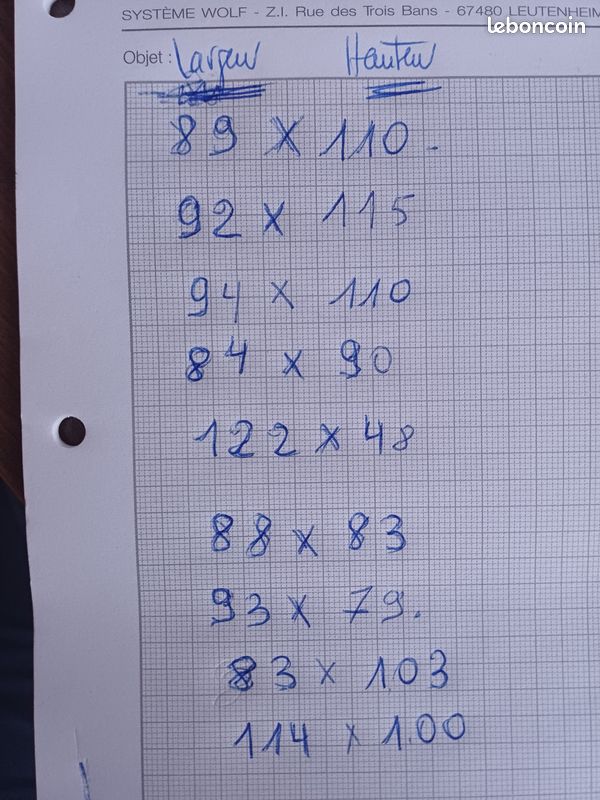 SYSTÈME WOLF - Z.I. Rue des Trois Bans - 67480 LEUTENHEIM
leboncoin
Objet : Largeur Hauteur
89 x 110.
92 x 115
94 x 110
84 x 90
122 x 48
88 x 83
93 x 79.
83 x 103
114 x 1.00